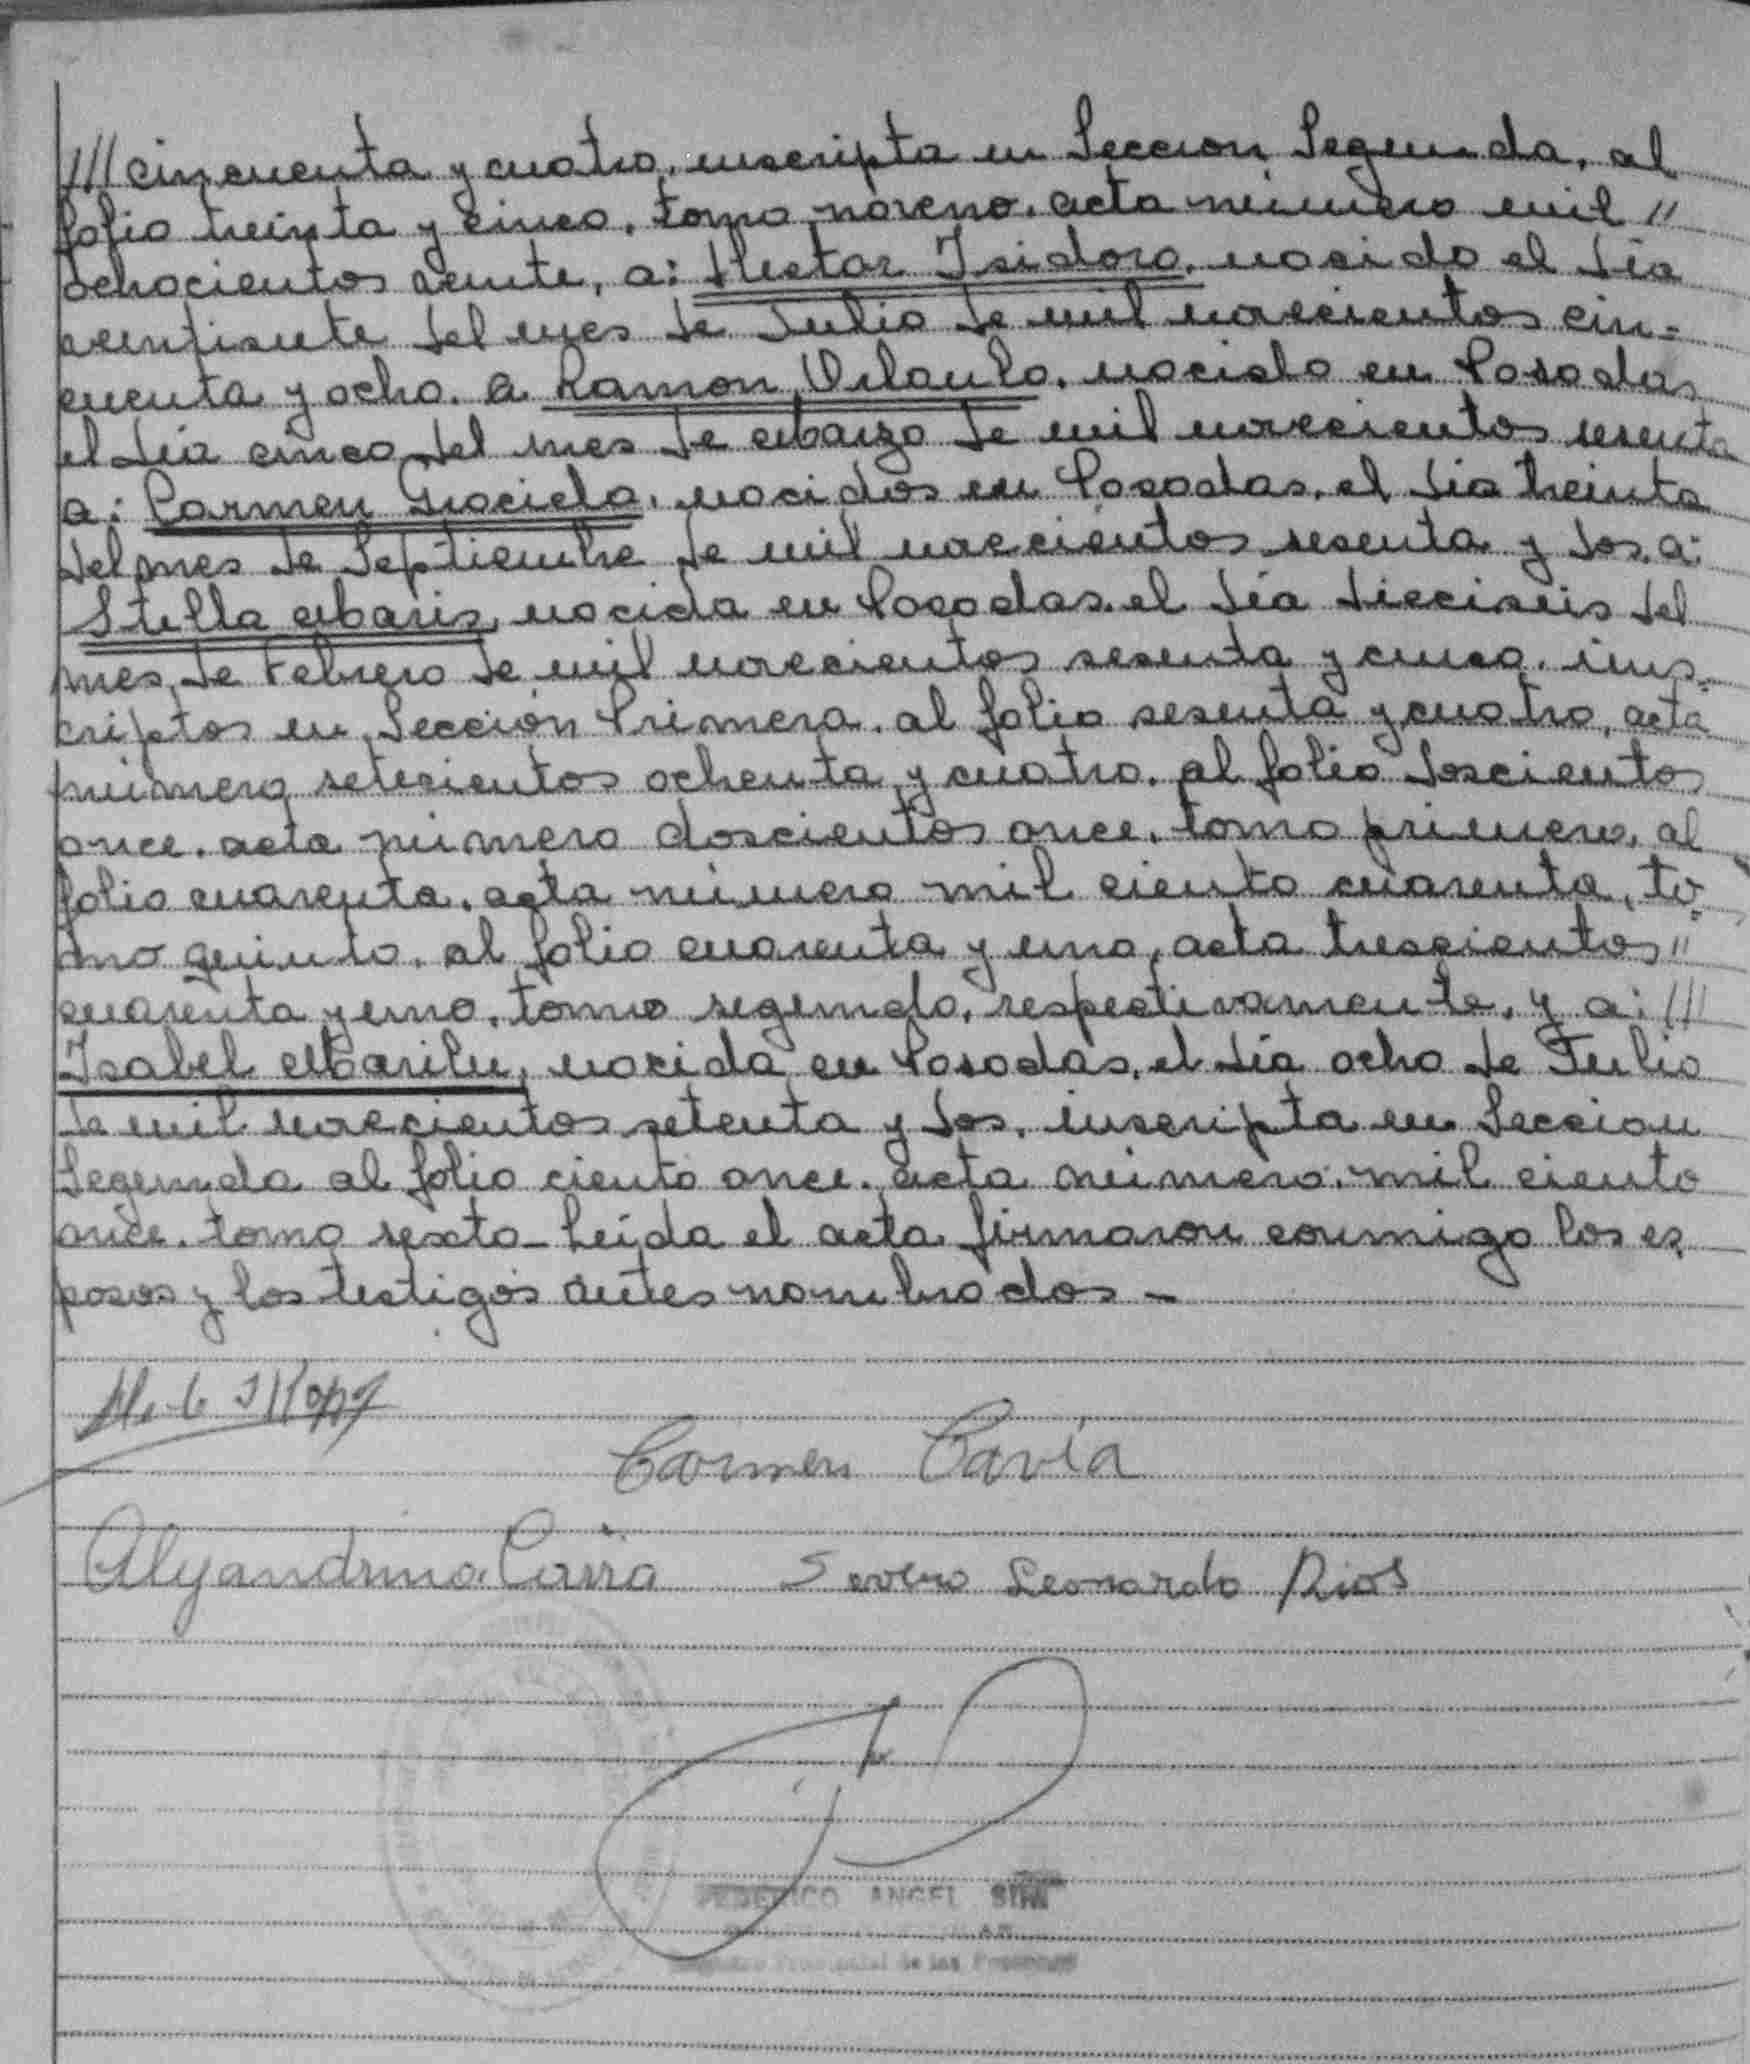 /// cincuenta y cuatro, inscripta en Seccion Segunda, al
folio treinta y cinco, tomo noveno, acta número mil "
ochocientos veinte, a: Hector Isidoro, nacido el día
veintisiete del mes de Julio de mil novecientos cin-
cuenta y ocho. a Ramon Orlando, nacido en Posadas
el día cinco del mes de Marzo de mil novecientos sesenta
a: Carmen Graciela, nacidos en Posadas, el día treinta
del mes de Septiembre de mil novecientos sesenta y dos, a:
Stella Maris, nacida en Posadas, el día dieciseis del
mes de Febrero de mil novecientos sesenta y cinco, ins-
criptos en Sección Primera, al folio sesenta y cuatro, acta
número setecientos ochenta y cuatro, al folio doscientos
once, acta número doscientos once, tomo primero, al
folio cuarenta, acta número mil ciento cuarenta, to-
mo quinto, al folio cuarenta y uno, acta trescientos "
cuarenta y uno, tomo segundo, respectivamente, y a: ///
Isabel Marilu, nacida en Posadas, el día ocho de Julio
de mil novecientos setenta y dos, inscripta en Seccion
Segunda al folio ciento once, acta número mil ciento
once, tomo sexto_ Leída el acta firmaron conmigo los es-
posos y los testigos antes nombrados -
Carmen Pavía
Alejandrina Severo Leonardo Rios
FEDERICO ANGEL
Provincial de las Personas